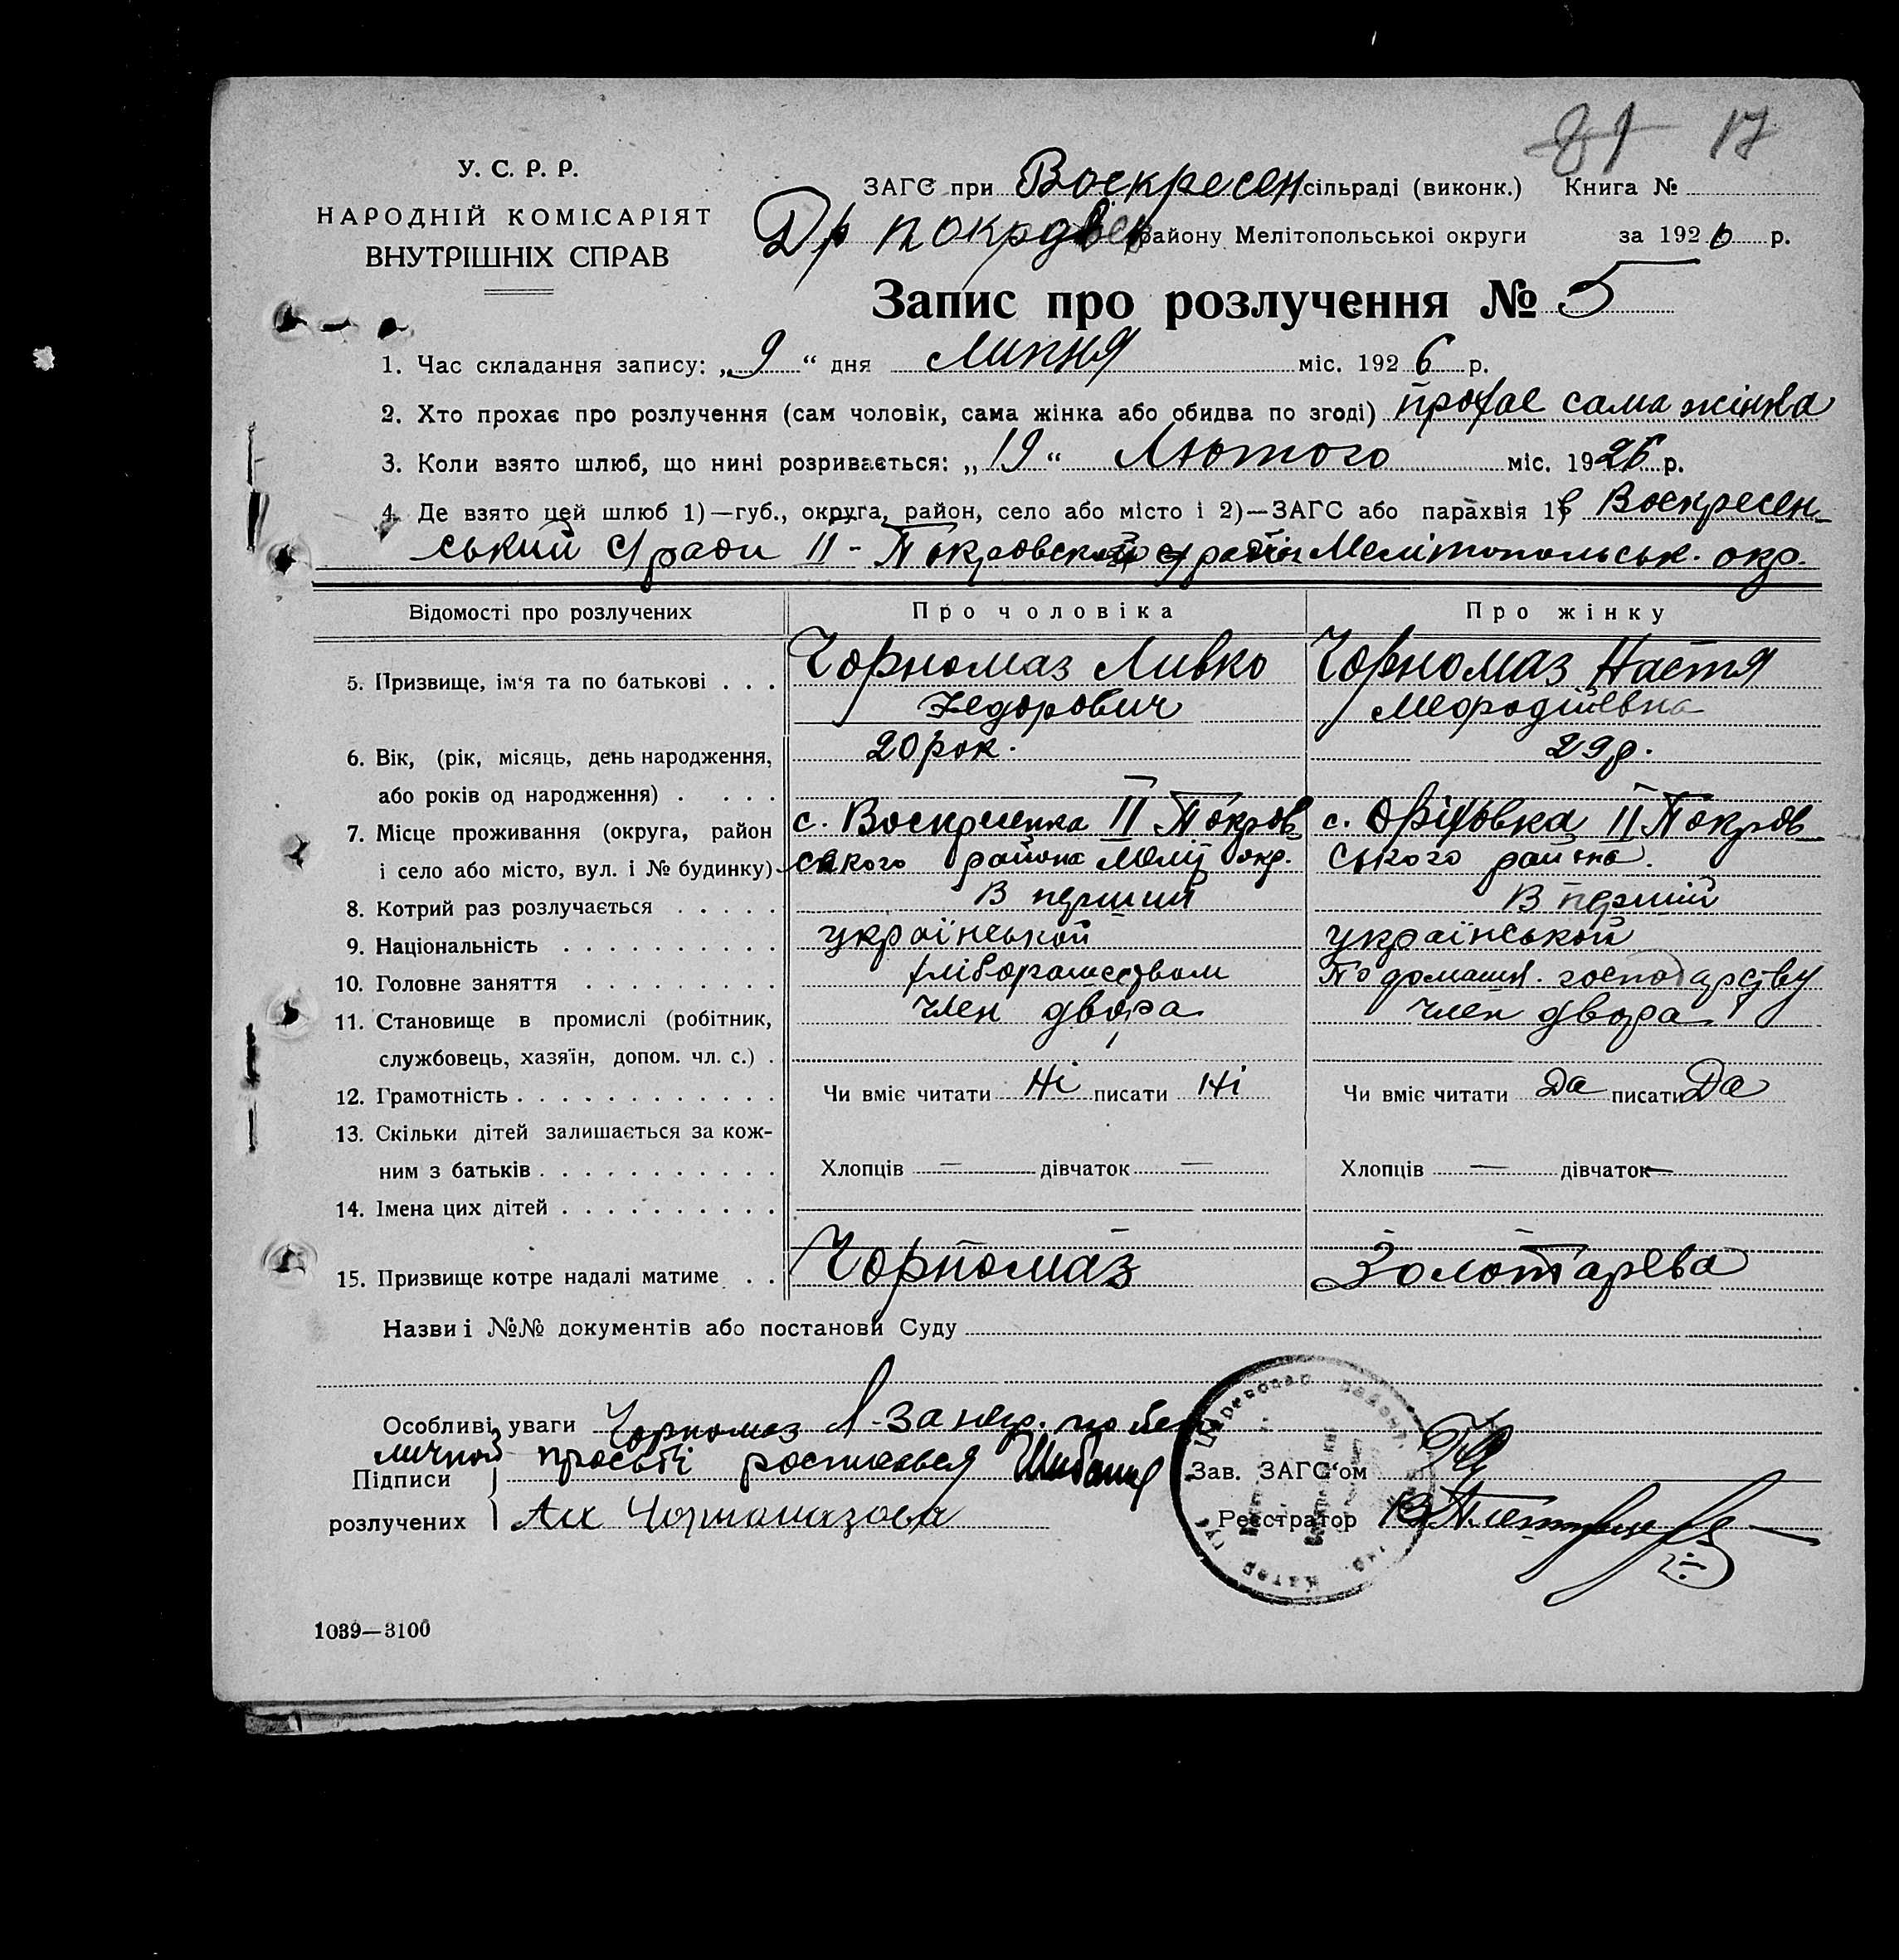 81 17
У. С. Р. Р.
НАРОДНІЙ КОМІСАРІЯТ
ВНУТРІШНІХ СПРАВ
ЗАГС при Воскресен сільраді (виконк.) Книга №
району Мелітопольської округи за 1926 р.
Запис про розлучення № 5
1. Час складання запису: „9“ дня Липня міс. 1926 р.
2. Хто прохає про розлучення (сам чоловік, сама жінка або обидва по згоді) прохає сама жінка
3. Коли взято шлюб, що нині розривається: „19“ Лютого міс. 1926 р.
4. Де взято цей шлюб 1)—губ., округа, район, село або місто і 2)—ЗАГС або парахвія 1) В Воскресен-
ський С/ради ІІ-Покровской район Мелітопольськ. окр.
Відомості про розлучених Про чоловіка Про жінку
5. Призвище, ім‘я та по батькові Чорномаз Ливко Чорномаз Настя
Федорович Мефодіївна
6. Вік, (рік, місяць, день народження, 20 рок. 29 р.
або років од народження)
7. Місце проживання (округа, район с. Воскресенка ІІ Покров с. Оріговка ІІ Покров
і село або місто, вул. і № будинку) ського района Меліт окр. ського района.
8. Котрий раз розлучається В перший В перший
9. Національність українськой українськой
10. Головне заняття хліборапством По домашн. господарству
11. Становище в промислі (робітник, член двора член двора
службовець, хазяїн, допом. чл. с.)
12. Грамотність Чи вміє читати Ні писати Ні Чи вміє читати Да писати Да
13. Скільки дітей залишається за кож-
ним з батьків Хлопців — дівчаток — Хлопців — дівчаток —
14. Імена цих дітей
15. Призвище котре надалі матиме Чорномаз Золотарева
Назви і №№ документів або постанови Суду
Особливі уваги Чорномаз Л. за негр. по его
личной просьбі росписався
Підписи
розлучених Чорномазова
Зав. ЗАГС‘ом
Реєстратор
1039—3100